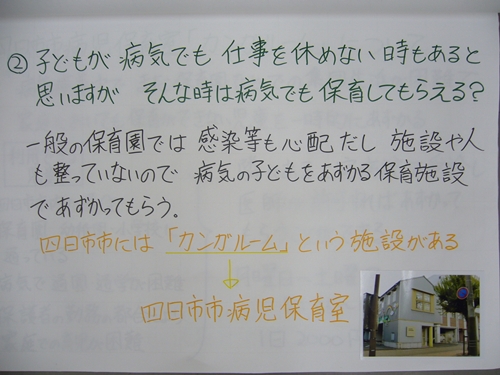 ② 子どもが 病気でも 仕事を休めない 時もあると
思いますが そんな時は病気でも 保育してもらえる？
一般の保育園では 感染等も心配だし 施設や人
も 整っていないので 病気の子どもをあずかる保育施設
であずかってもらう。
四日市市には「カンガルーム」という施設がある
↓
四日市市病児保育室